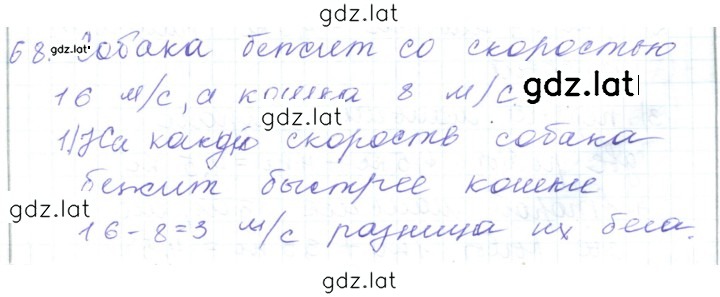 gdz.lat
68. Собака бежит со скоростью
gdz.lat
16 м/с, а кошка 8 м/с
gdz.lat
1) На какую скорость собака
бежит быстрее кошки
gdz.lat
16-8=3 м/с разница их бега.
gdz.lat